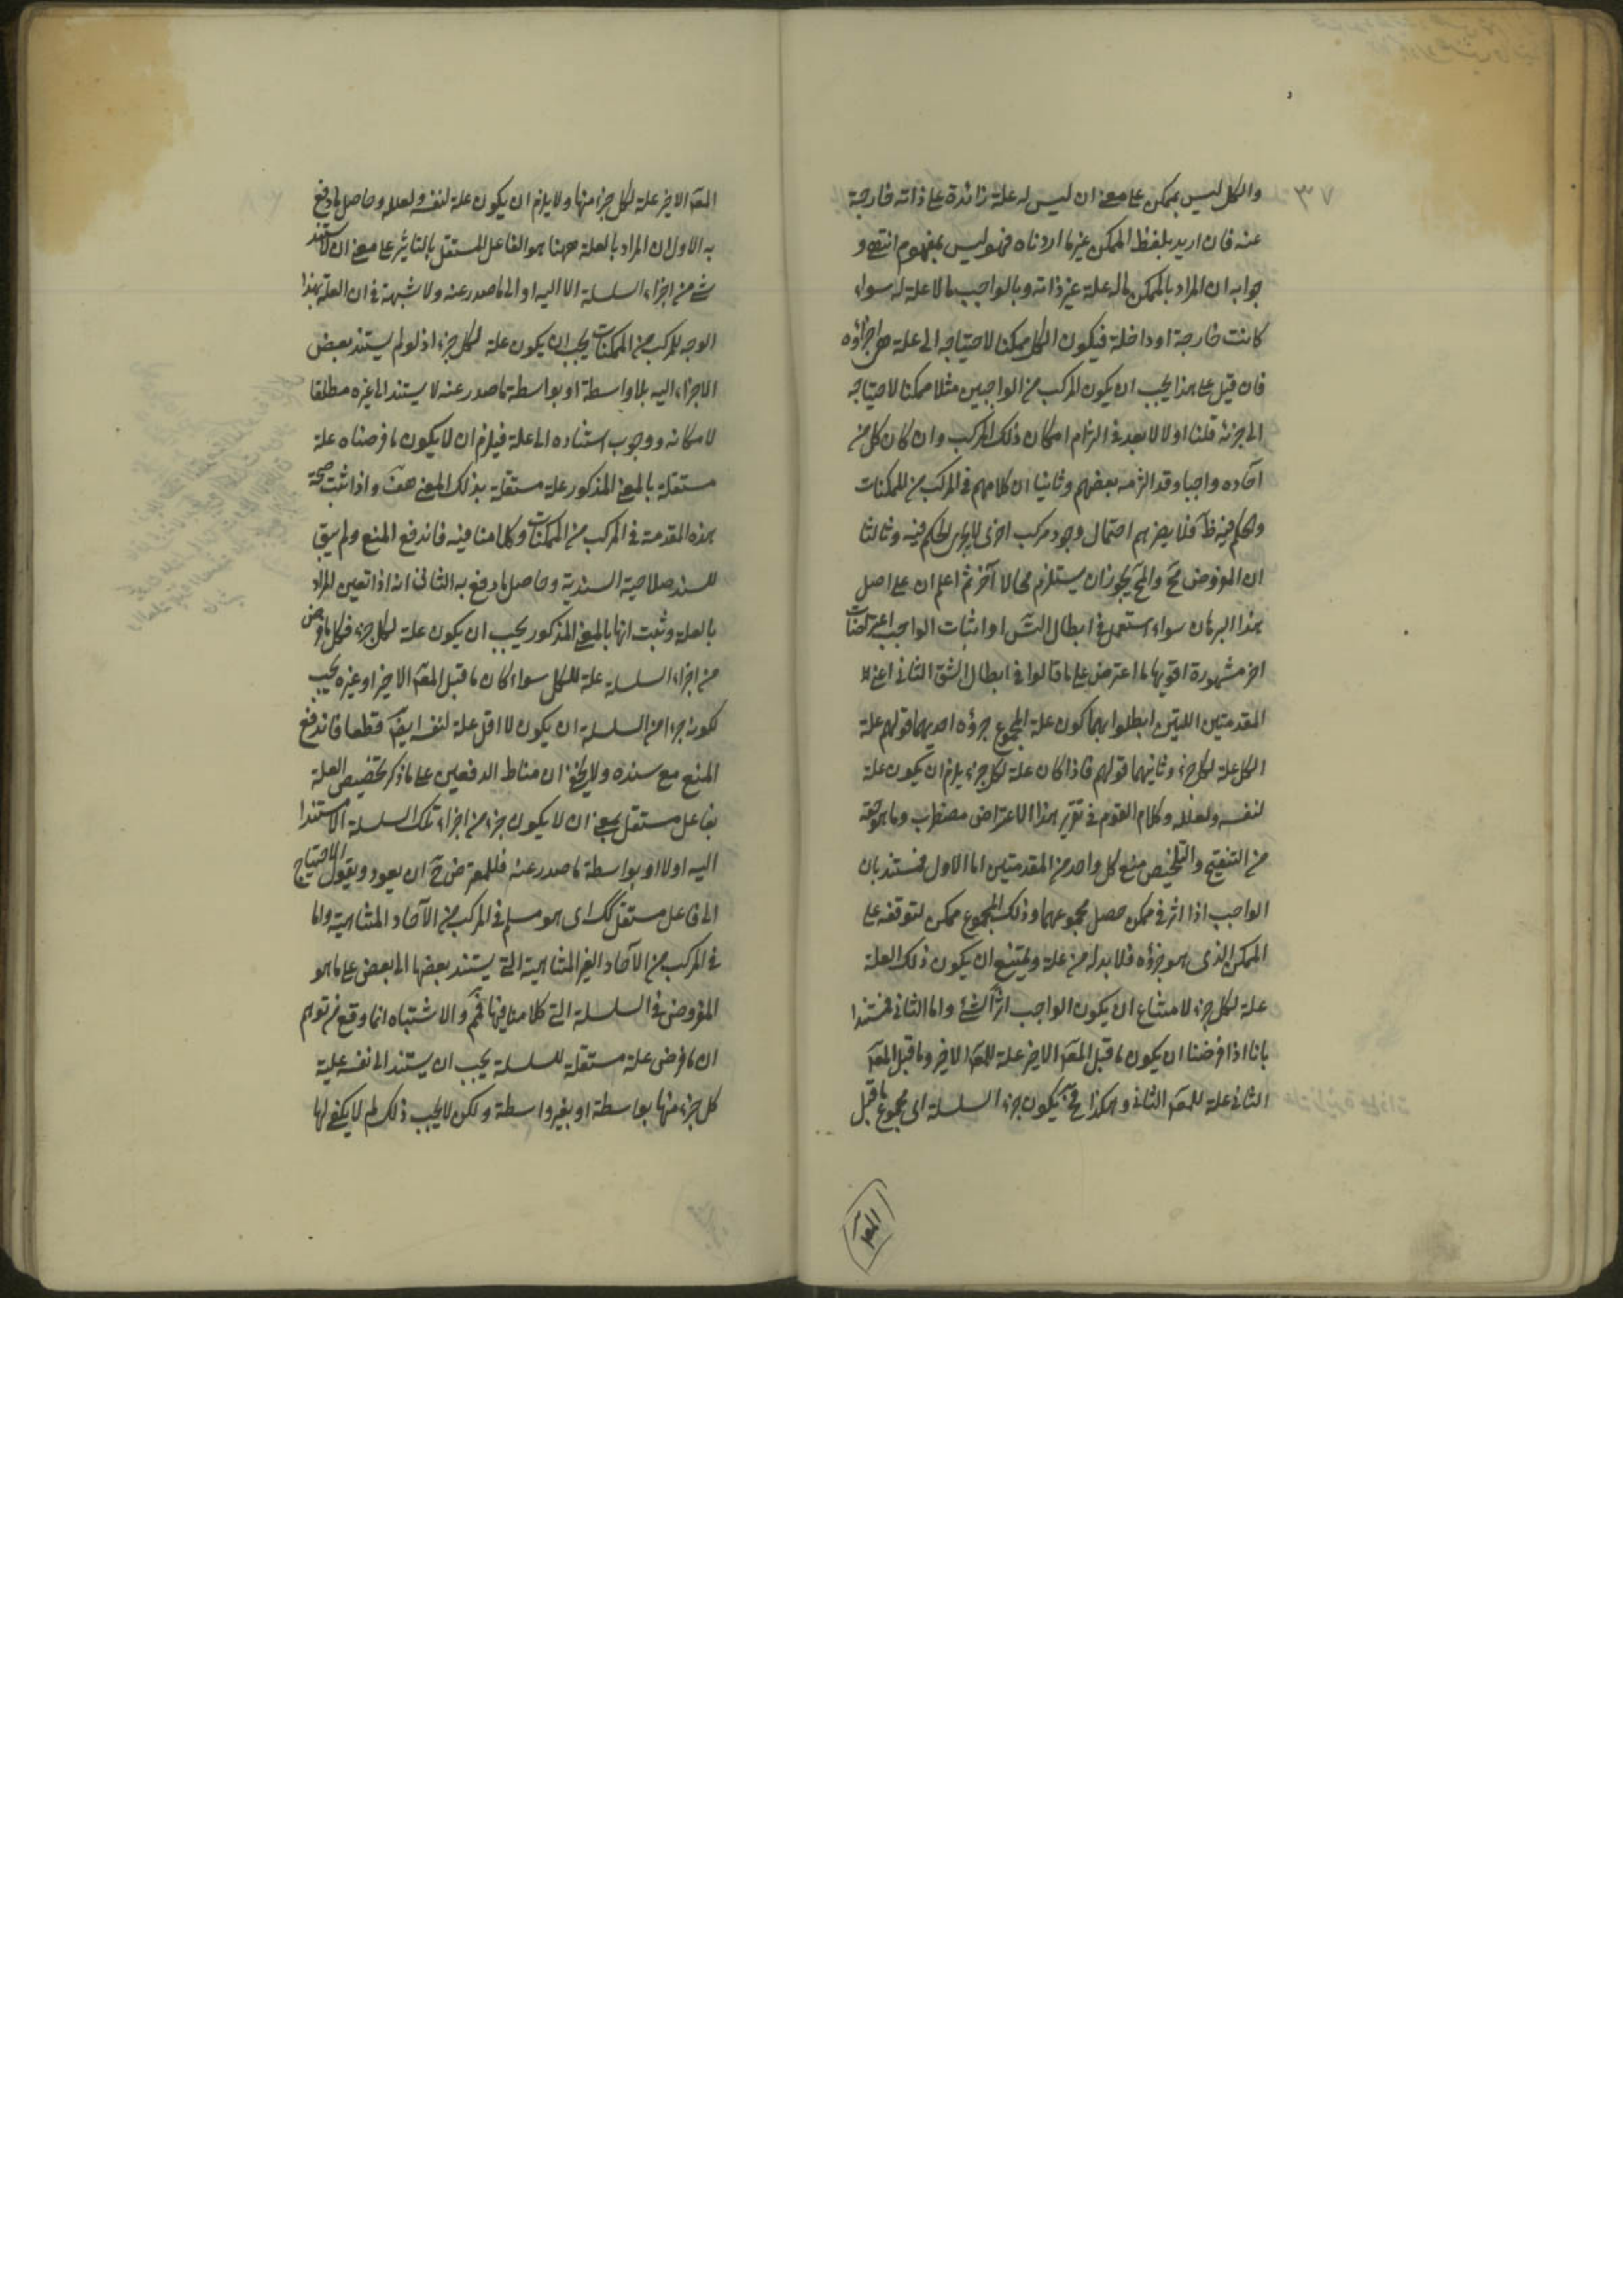 ٣٧
والكل ليس بممكن على معنى ان ليس له علة زائدة على ذاته خارجة
عنه فان اريد بلفظ الممكن غير ما اردناه فهو ليس بمفهوم انتهى و
جوابه ان المراد بالممكن ما له علة غير ذاته وبالواجب ما لا علة له سواء
كانت خارجة او داخلة فيكون الكل ممكنا لاحتياجه الى علة هى اجزاؤه
فان قيل على هذا يجب ان يكون المركب من الواجبين مثلا ممكنا لاحتياجه
الى جزئه قلنا اولا لا بعد فى التزام امكان ذلك المركب وان كان كل من
آحاده واجبا وقد التزمه بعضهم وثانيا ان كلامهم فى المركب من الممكنات
والحكم فيه ظ فلا يضرهم احتمال وجود مركب اخر لا يجرى الحكم فيه وثالثا
ان المفروض مح والمح يجوز ان يستلزم محالا آخر ثم اعلم ان على اصل
هذا البرهان سواء استعمل فى ابطال التس او اثبات الواجب اعتراضات
اخر مشهورة اقويها ما اعترض على ما قالوا فى ابطال الشق الثانى اعنى
المقدمتين اللتين ابطلوا بهما كون علة المجموع جزؤه احديهما قولهم علة
الكل علة لكل جزء وثانيهما قولهم فاذا كان علة لكل جزء يلزم ان يكون علة
لنفسه ولعلله وكلام القوم فى تقرير هذا الاعتراض مضطرب وما هو حقه
من التنقيح والتلخيص منع كل واحد من المقدمتين اما الاول فمستند بان
الواجب اذا اثر فى ممكن حصل مجموعهما وذلك المجموع ممكن لتوقفه على
الممكن الذى هو جزؤه فلا بد له من علة ويمتنع ان يكون ذلك العلة
علة لكل جزء لامتناع ان يكون الواجب اثرا لشئ واما الثانى فمستندا
بانا اذا فرضنا ان يكون ما قبل المعلـ الاخير علة للمعلـ الاخير وما قبل المعلـ
الثانى علة للمعلـ الثانى وهكذا فح يكون جزء السلسلة اى مجموع ما قبل
المعلـ
المعلـ الاخير علة لكل جزء منها ولا يلزم ان يكون علة لنفسه ولعلله وحاصل ما دفع
به الاول ان المراد بالعلة ههنا هو الفاعل المستقل بالتاثير على معنى ان لا يستند
شئ من اجزاء السلسلة الا اليه او الى ما صدر عنه ولا شبهة فى ان العلة بهذا
الوجه للمركب من الممكنات يجب ان يكون علة لكل جزء اذ لو لم يستند بعض
الاجزاء اليه بلا واسطة او بواسطة ما صدر عنه لا يستند الى غيره مطلقا
لامكانه ووجوب استناده الى علة فيلزم ان لا يكون ما فرضناه علة
مستقلة بالمعنى المذكور علة مستقلة بذلك المعنى هف واذا ثبت صحة
هذه المقدمة فى المركب من الممكنات وكلامنا فيه فاندفع المنع ولم يبق
للسند صلاحية السندية وحاصل ما دفع به الثانى انه اذا تعين المراد
بالعلة وثبت انها بالمعنى المذكور يجب ان يكون علة لكل جزء فكل ما فرض
من اجزاء السلسلة علة للكل سواء كان ما قبل المعلـ الاخير او غيره يجب
لكونه جزءا من السلسلة ان يكون لا اقل علة لنفسه ايضا قطعا فاندفع
المنع مع سنده ولا يخفى ان مناط الدفعين على ما ذكر تخصيص العلة
بفاعل مستقل بمعنى ان لا يكون جزء من اجزاء تلك السلسلة الا مستندا
اليه اولا او بواسطة ما صدر عنه فللمعترض ح ان يعود ويقول الاحتياج
الى فاعل مستقل كك اى هو مسلم فى المركب من الآحاد المتناهية واما
فى المركب من الآحاد الغير المتناهية التى يستند بعضها الى بعض على ما هو
المفروض فى السلسلة التى كلامنا فيها فمم والاشتباه انما وقع من توهم
ان ما فرض علة مستقلة للسلسلة يجب ان يستند الى نفسه علية
كل جزء منها بواسطة او بغير واسطة ولكن لا يجب ذلك لم لا يكفى لها